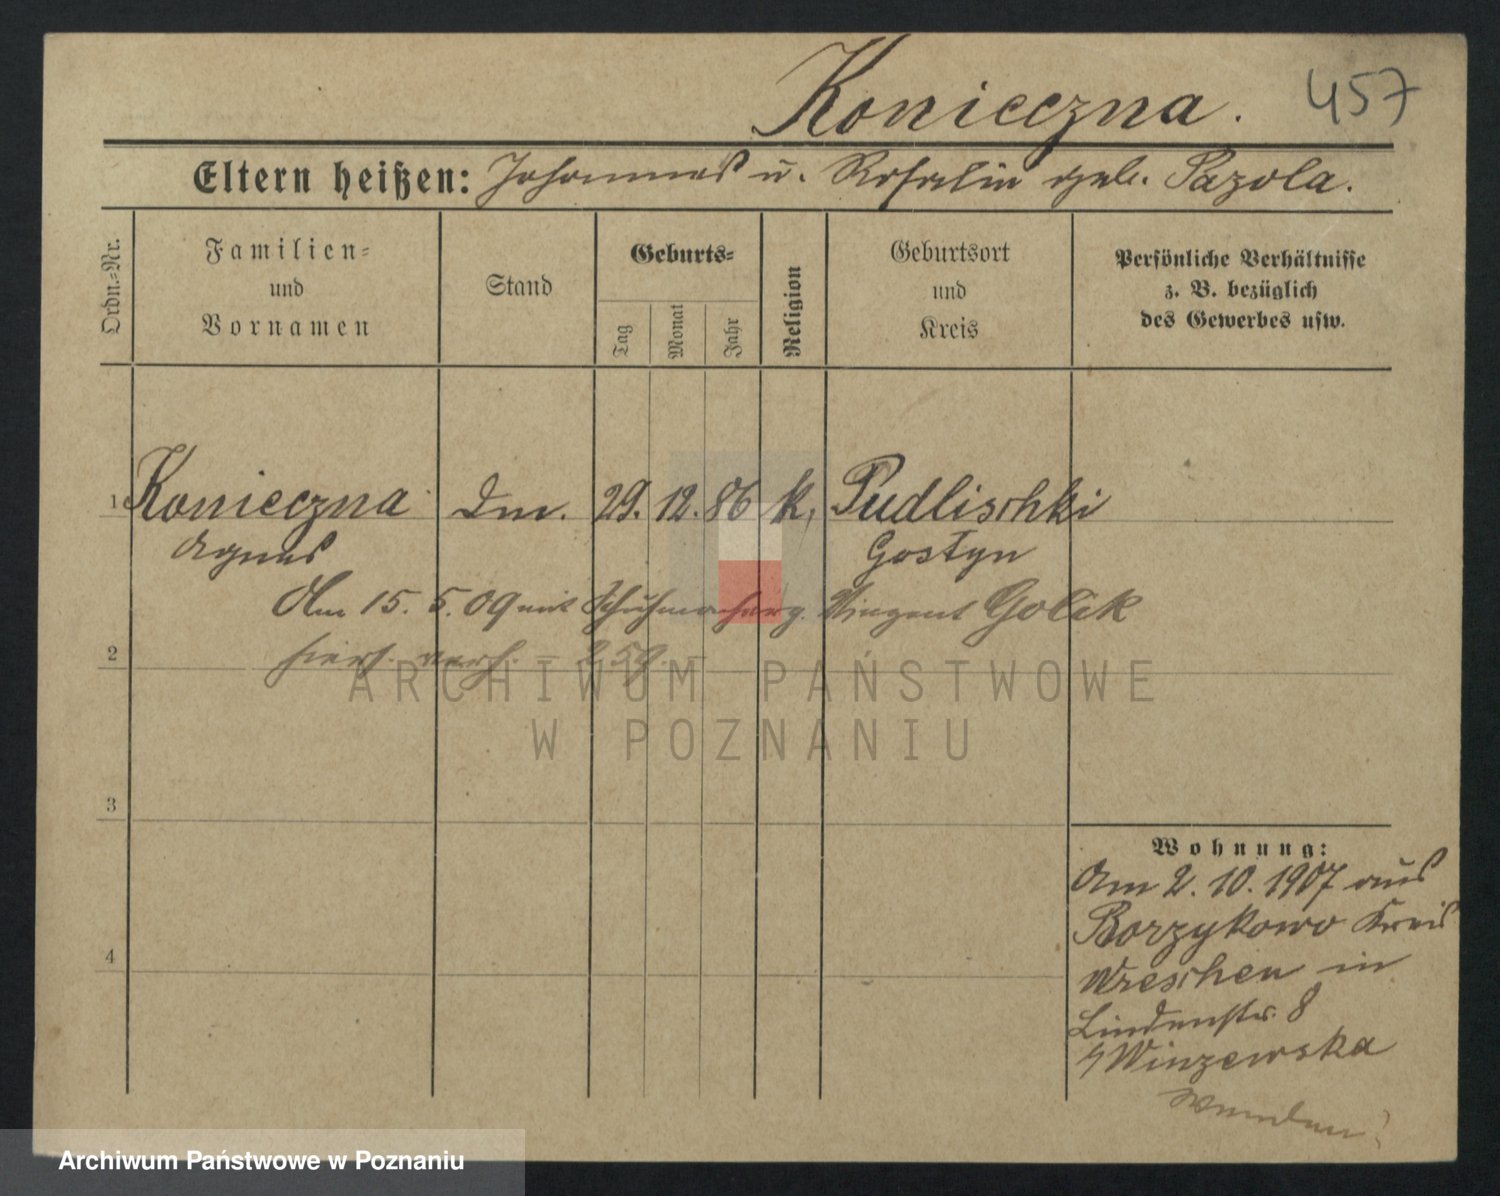 Konieczna. 457
Eltern heißen: Johannes u. Rosalie geb. Pazola.
Ordn.-Nr.
Familien-
und
Vornamen
Stand
Geburts-
Tag
Monat
Jahr
Religion
Geburtsort
und
Kreis
Persönliche Verhältnisse
z. B. bezüglich
des Gewerbes usw.
1 Konieczna Dm. 29. 12. 86 k. Pudlischki
Agnes Gostyn
Am 15. 5. 09 mit Schuhmacherg. Vinzent Golik
2 hiers. verh. –
ARCHIWUM PAŃSTWOWE
W POZNANIU
3
Wohnung:
Am 2. 10. 1907 aus
Borzykowo Kreis
4 Wreschen in
Lindenstr. 8
Winzewska
wenden!
Archiwum Państwowe w Poznaniu